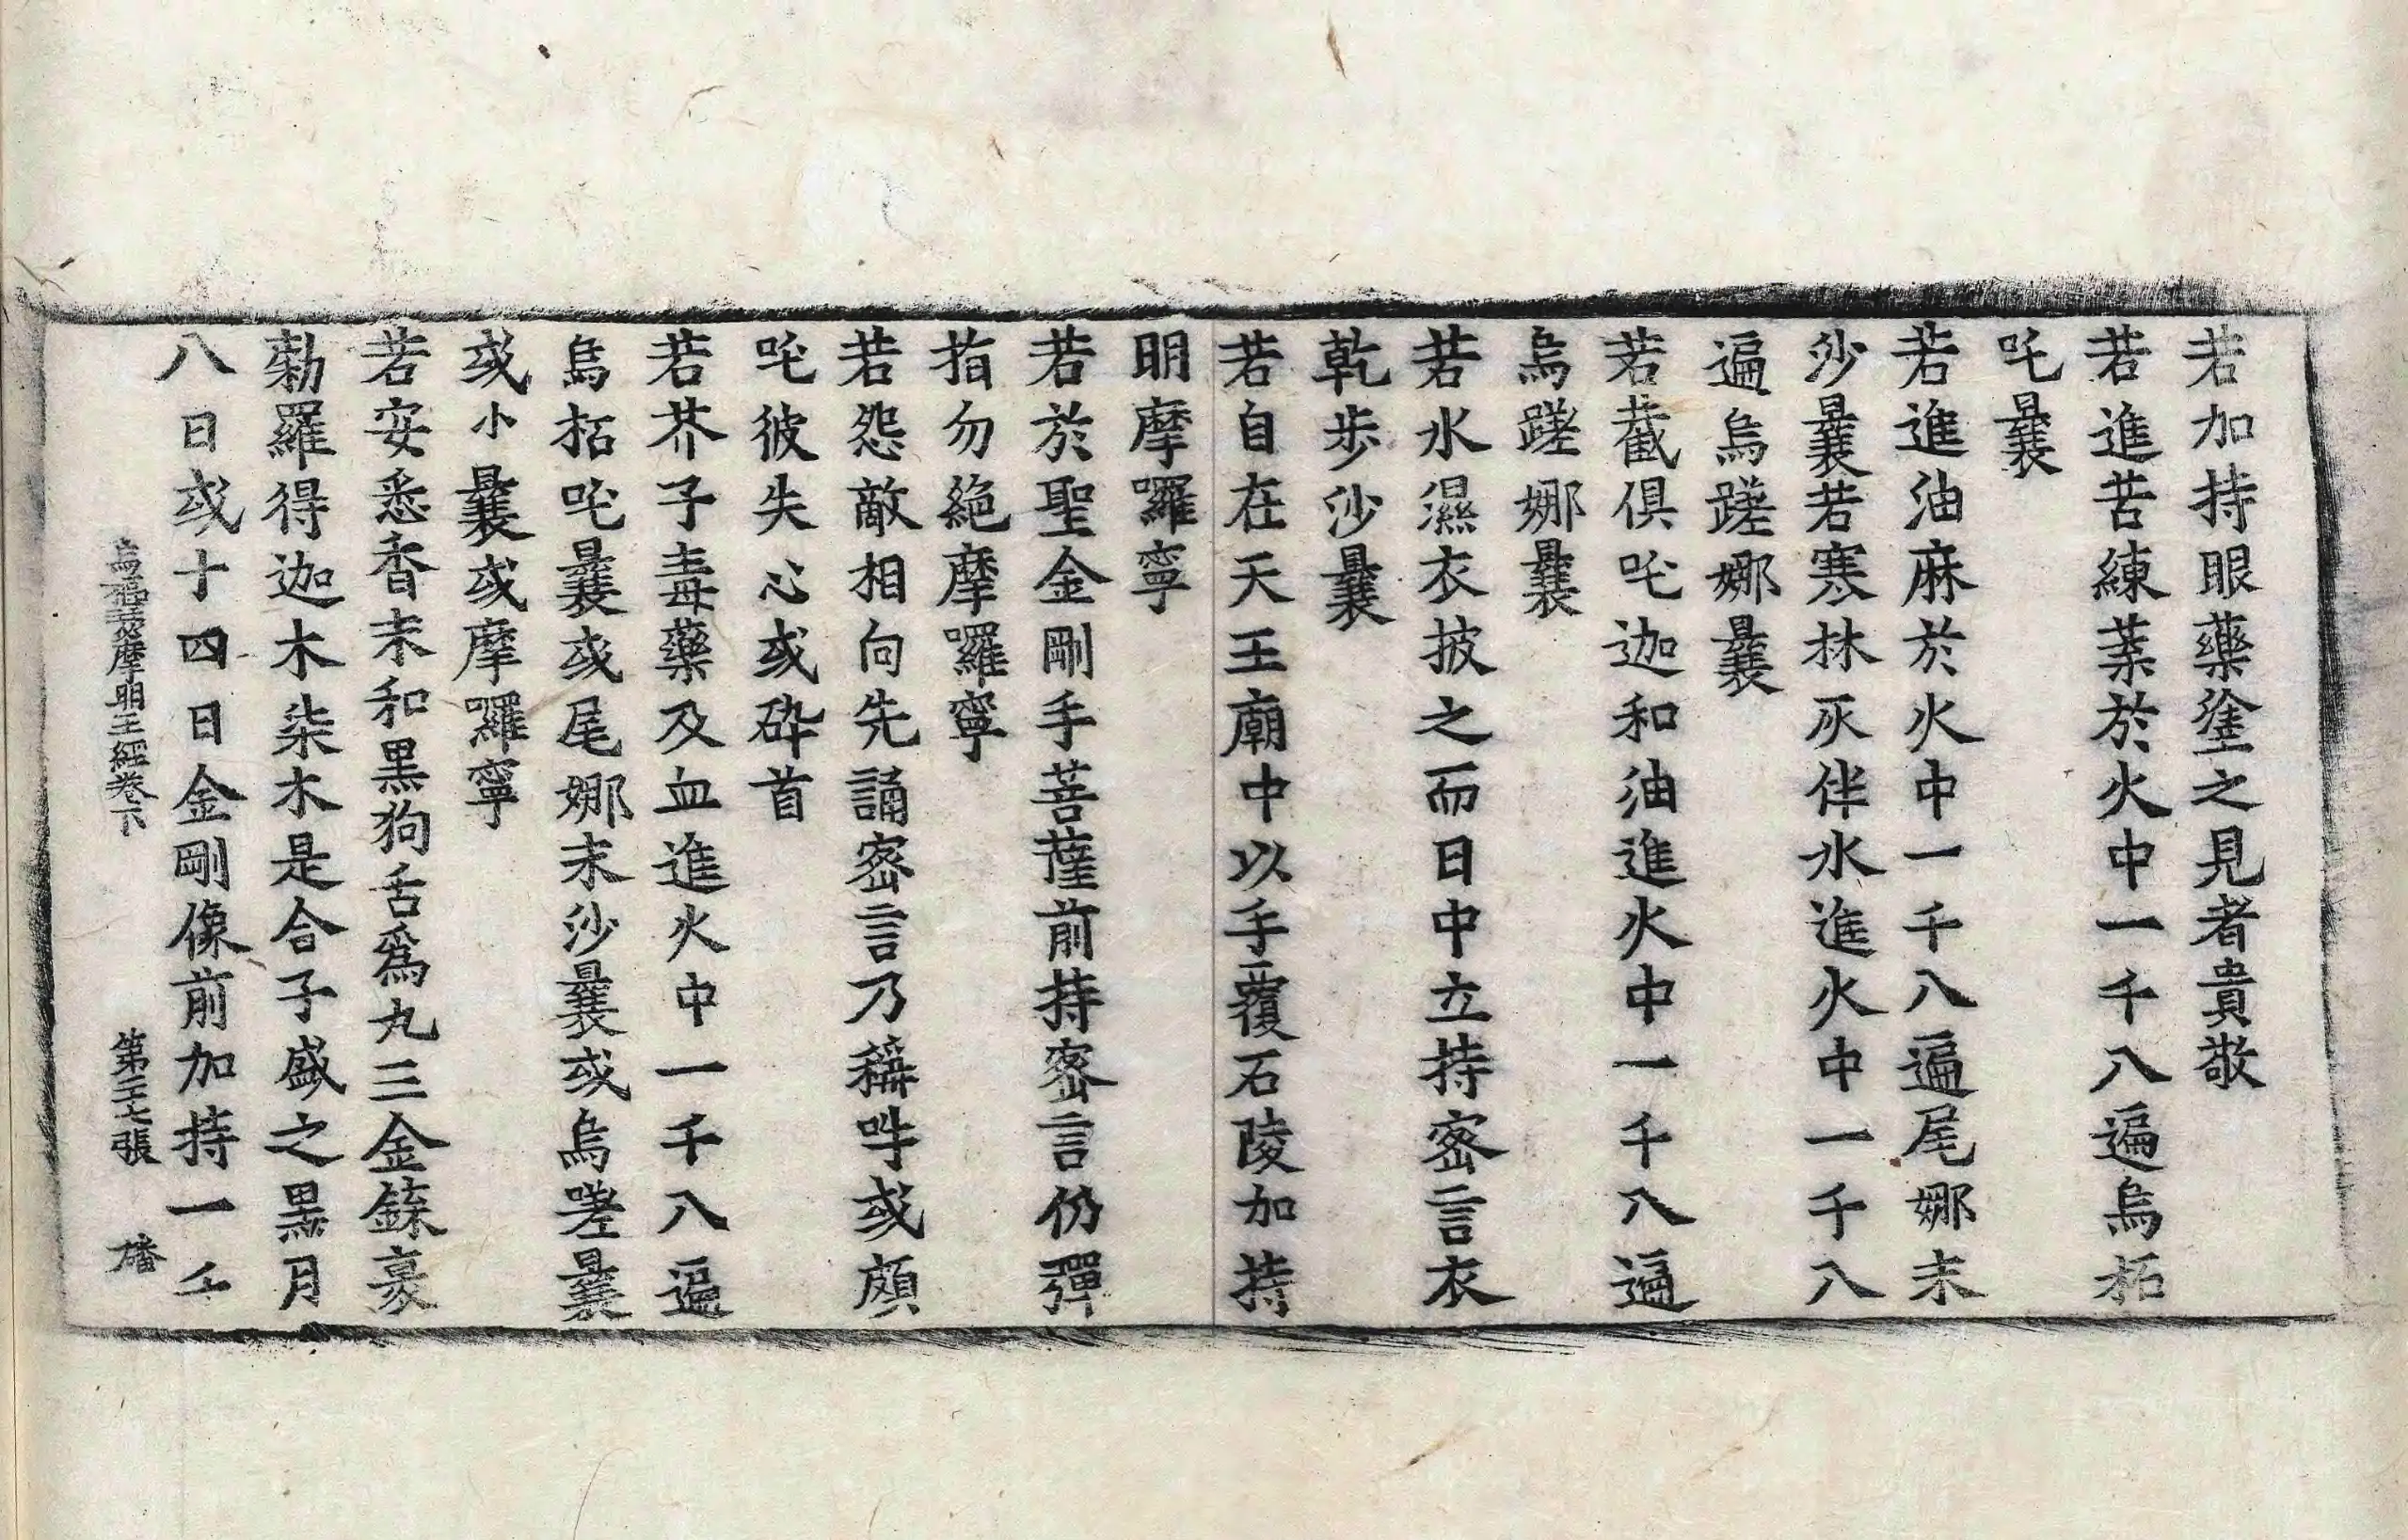 若加持眼藥塗之見者貴敬
若進苦練葉於火中一千八遍烏柘
吒曩
若進油麻於火中一千八遍尾娜末
沙曩若寒林灰伴水進火中一千八
遍烏蹉娜曩
若截俱吒迦和油進火中一千八遍
烏蹉娜曩
若水濕衣披之而日中立持密言衣
乾步沙曩
若自在天王廟中以手覆石陵加持
明摩囉寧
若於聖金剛手菩薩前持密言仍彈
指勿絕摩囉寧
若怨敵相向先誦密言乃稱吽或頗
吒彼失心或碎首
若芥子毒藥及血進火中一千八遍
烏柘吒曩或尾娜末沙曩或烏嗟曩
或小曩或摩囉寧
若安悉香末和黑狗舌為丸三金鎵裹
勒羅得迦木柒木是合子盛之黑月
八日或十四日金剛像前加持一千
烏芻澁摩明王經卷下 第二七張